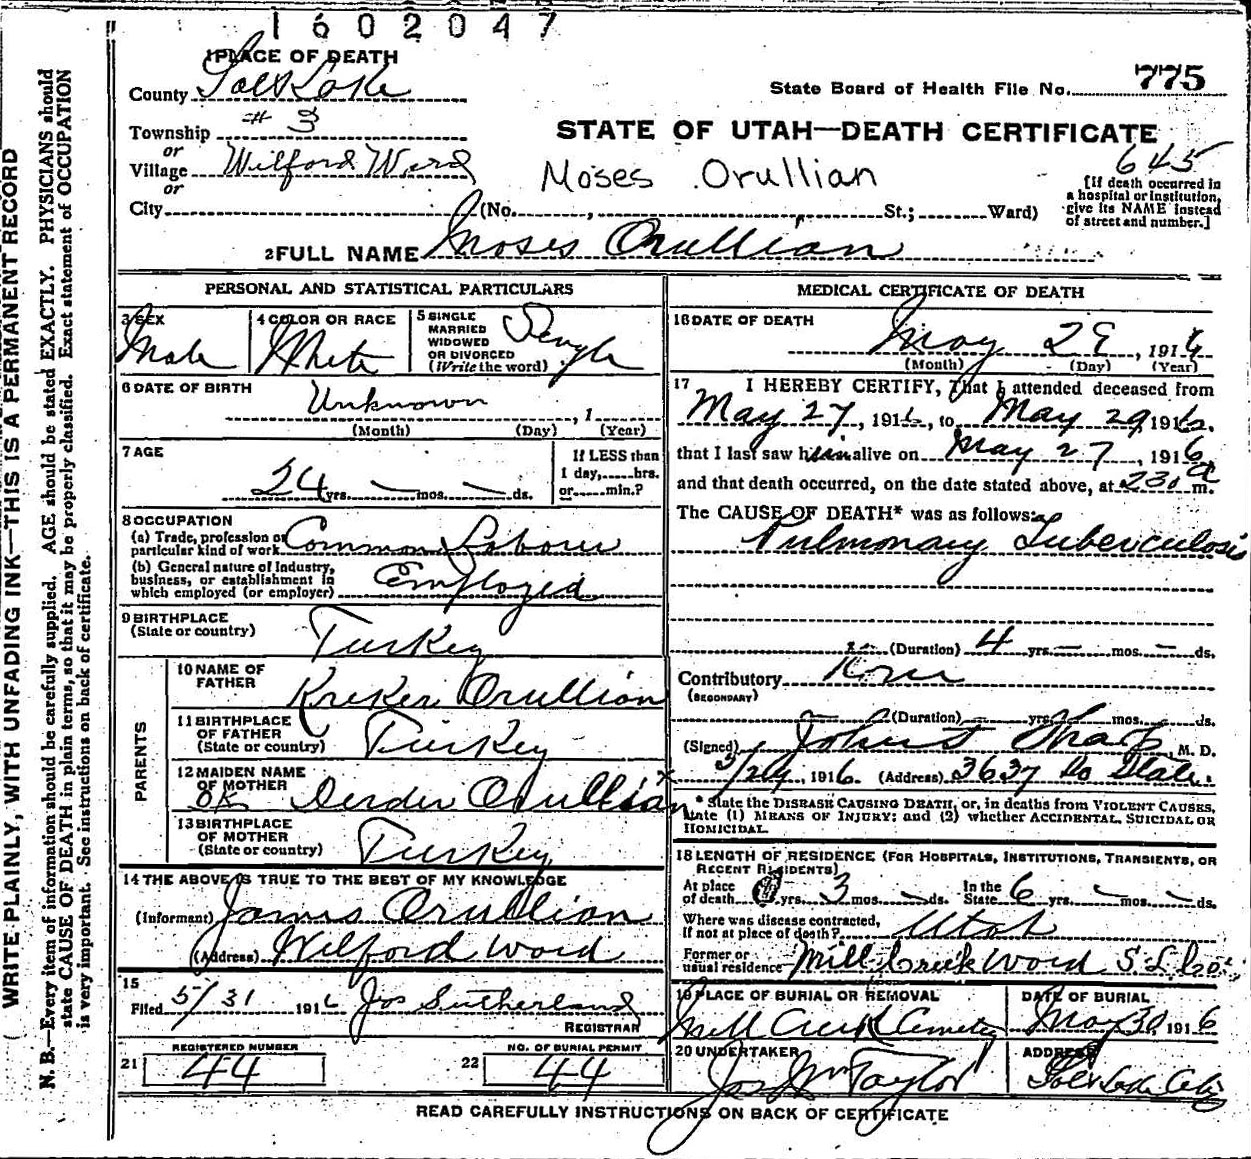 1602047
1 PLACE OF DEATH
County Salt Lake
State Board of Health File No. 775
Township # 3
or
Village Wilford Ward
or
City
STATE OF UTAH—DEATH CERTIFICATE
645
Moses Orullian
[If death occurred in
a hospital or institution,
give its NAME instead
of street and number.]
(No. , St.; Ward)
2 FULL NAME Moses Orullian
PERSONAL AND STATISTICAL PARTICULARS
3 SEX Male
4 COLOR OR RACE White
5 SINGLE
MARRIED
WIDOWED
OR DIVORCED
(Write the word) Single
6 DATE OF BIRTH
Unknown , 1
(Month) (Day) (Year)
7 AGE
24 yrs. — mos. — ds.
If LESS than
1 day, hrs.
or min.?
8 OCCUPATION
(a) Trade, profession or
particular kind of work Common Laborer
(b) General nature of Industry,
business, or establishment in
which employed (or employer) Employed
9 BIRTHPLACE
(State or country) Turkey
PARENTS
10 NAME OF
FATHER Kreker Orullian
11 BIRTHPLACE
OF FATHER
(State or country) Turkey
12 MAIDEN NAME
OF MOTHER
OK Orullian
13 BIRTHPLACE
OF MOTHER
(State or country) Turkey
14 THE ABOVE IS TRUE TO THE BEST OF MY KNOWLEDGE
(Informant) James Orullian
(Address) Wilford Ward
15
Filed 5/31 1916 Jos Sutherland
REGISTRAR
21 REGISTERED NUMBER 44
22 NO. OF BURIAL PERMIT 44
MEDICAL CERTIFICATE OF DEATH
16 DATE OF DEATH
May 29 , 1916
(Month) (Day) (Year)
17 I HEREBY CERTIFY, That I attended deceased from
May 27, 1916, to May 29 1916.
that I last saw him alive on May 27, 1916
and that death occurred, on the date stated above, at 230 a m.
The CAUSE OF DEATH* was as follows:
Pulmonary Tuberculosis
(Duration) 4 yrs. — mos. — ds.
Contributory
(SECONDARY)
(Duration) yrs. mos. ds.
(Signed) Sharp, M. D.
5/29, 1916. (Address) 3637 So State.
* State the DISEASE CAUSING DEATH, or, in deaths from VIOLENT CAUSES,
state (1) MEANS OF INJURY; and (2) whether ACCIDENTAL, SUICIDAL OR
HOMICIDAL.
18 LENGTH OF RESIDENCE (FOR HOSPITALS, INSTITUTIONS, TRANSIENTS, OR
RECENT RESIDENTS)
At place
of death yrs. 3 mos. — ds. In the
State 6 yrs. — mos. — ds.
Where was disease contracted,
If not at place of death? Utah
Former or
usual residence Mill Creek Ward S. L. Co.
19 PLACE OF BURIAL OR REMOVAL
Mill Creek Cemetery
DATE OF BURIAL
May 30 1916
20 UNDERTAKER
Jos Wm Taylor
ADDRESS
Salt Lake City
READ CAREFULLY INSTRUCTIONS ON BACK OF CERTIFICATE
WRITE PLAINLY, WITH UNFADING INK—THIS IS A PERMANENT RECORD
N. B.—Every item of information should be carefully supplied. AGE should be stated EXACTLY. PHYSICIANS should
state CAUSE OF DEATH in plain terms, so that it may be properly classified. Exact statement of OCCUPATION
is very important. See instructions on back of certificate.